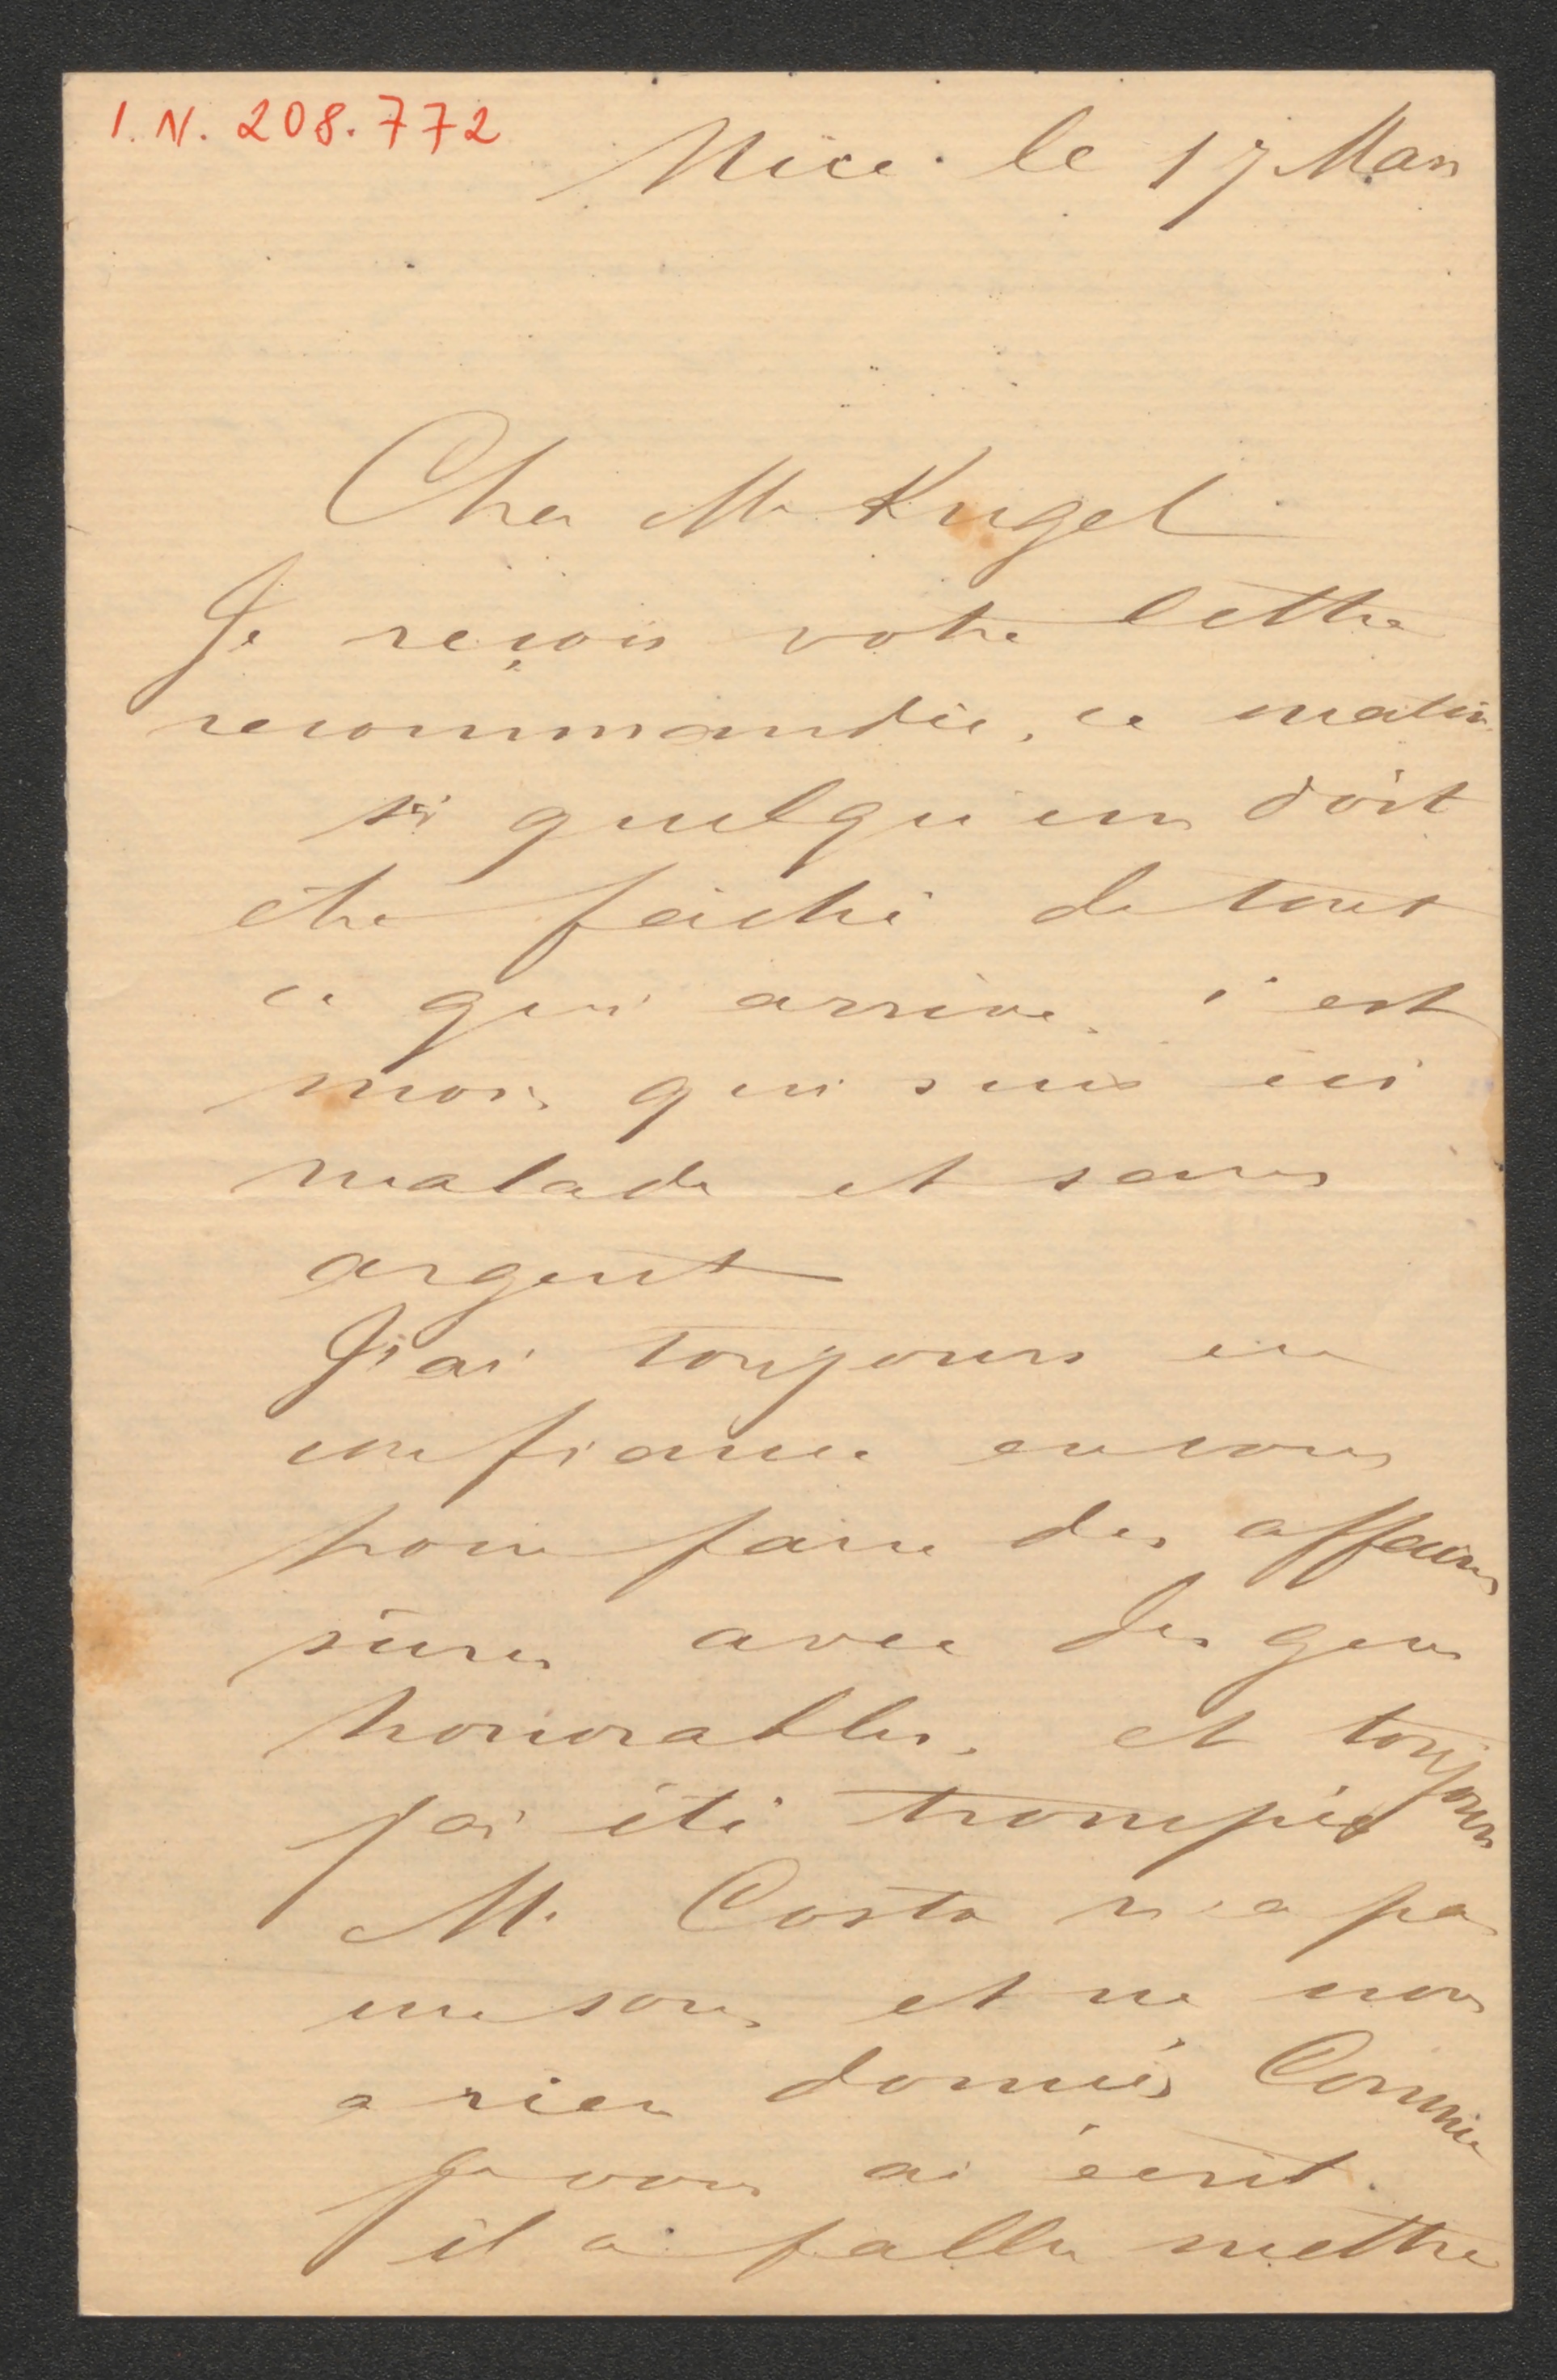 I. N. 208.772
Nice. le 17 Mars
Cher Mr Kugel
Je reçois votre lettre
recommandée, ce matin
si quelqu'un doit
etre fâché de tout
ce qui arrive. c'est
moi, qui suis ici
malade et sans
argent
J'ai toujours eu
confiance en vous
pour faire des affaires
sûres avec des gens
honorables, et toujours
j'ai été trompée
Mr Costa n'a pas
un sou, et ne nous
a rien donnés Comme
je vous ai écrit.
il a fallu mettre